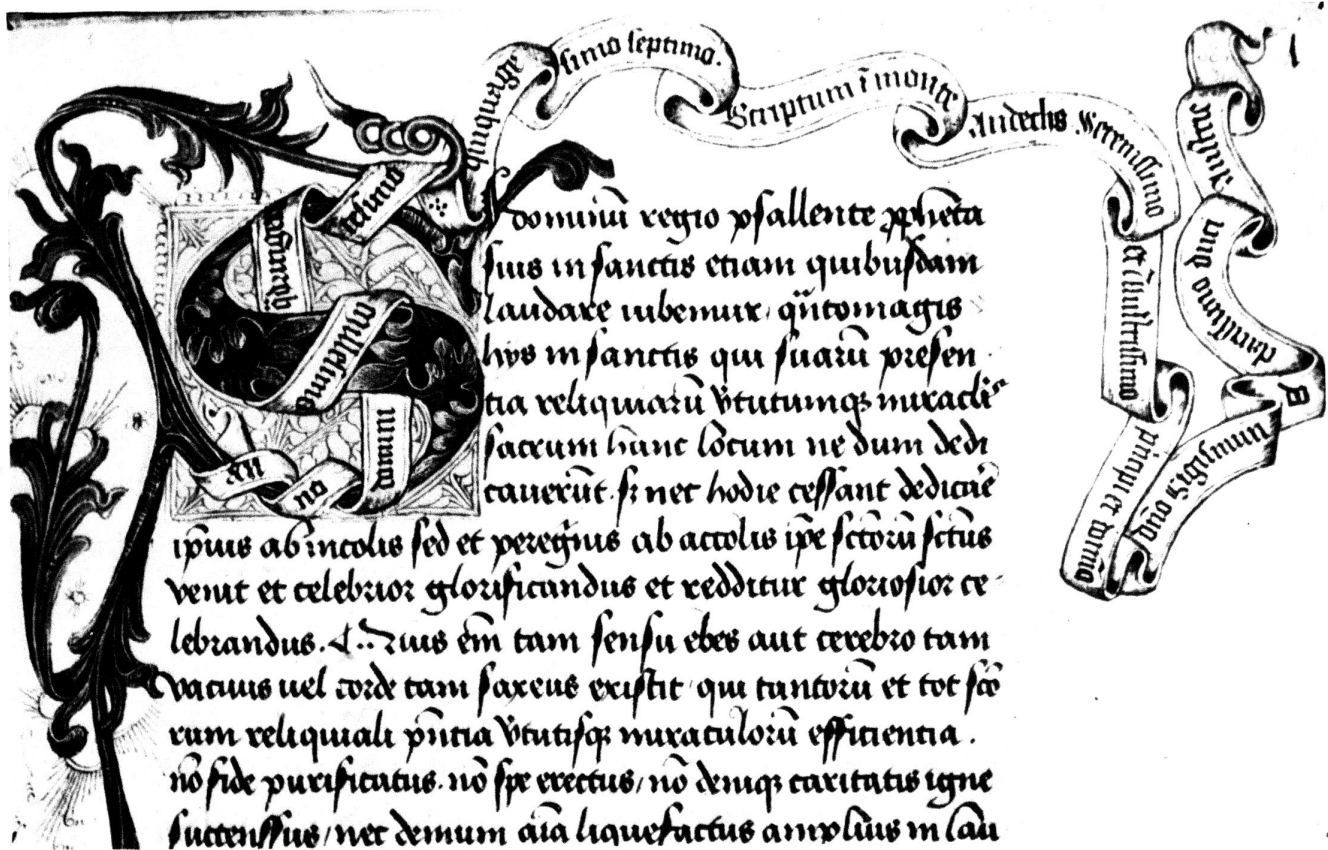 Anno domini millesimo quadringentesimo quinquagesimo septimo. Scriptum ī monte Andechs Serenissimo et illustrissimo principi et domīo dn̄o Sigismundo
S I dominū regio psallente ꝓpheta
suis in sanctis etiam quibusdam
laudare iubemur / qn̄tomagis
hys in sanctis qui suarū presen
tia reliquiarū v̄tutumqȝ miraclis
sacrum hunc locum ne dum dedi
caverūt. sȝ nec hodie cessant dedicār̄
ip̄ius ab incolis sed et peregⁱnis ab accolis ip̄e sctōrū sctūs
venit et celebrior glorificandus et redditur gloriosior ce-
lebrandus. Quis em̄ tam sensu ebes aut cerebro tam
vacuus uel corde tam saxeus existit / qui tantorū et tot scō
rum reliquiali pn̄tia v̄tutisqȝ miraculorū efficientia.
nō fide purificatus. nō spe erectus / nō demqȝ caritatis igne
succenssus / nec demum aīa liquefactus amplius in lau